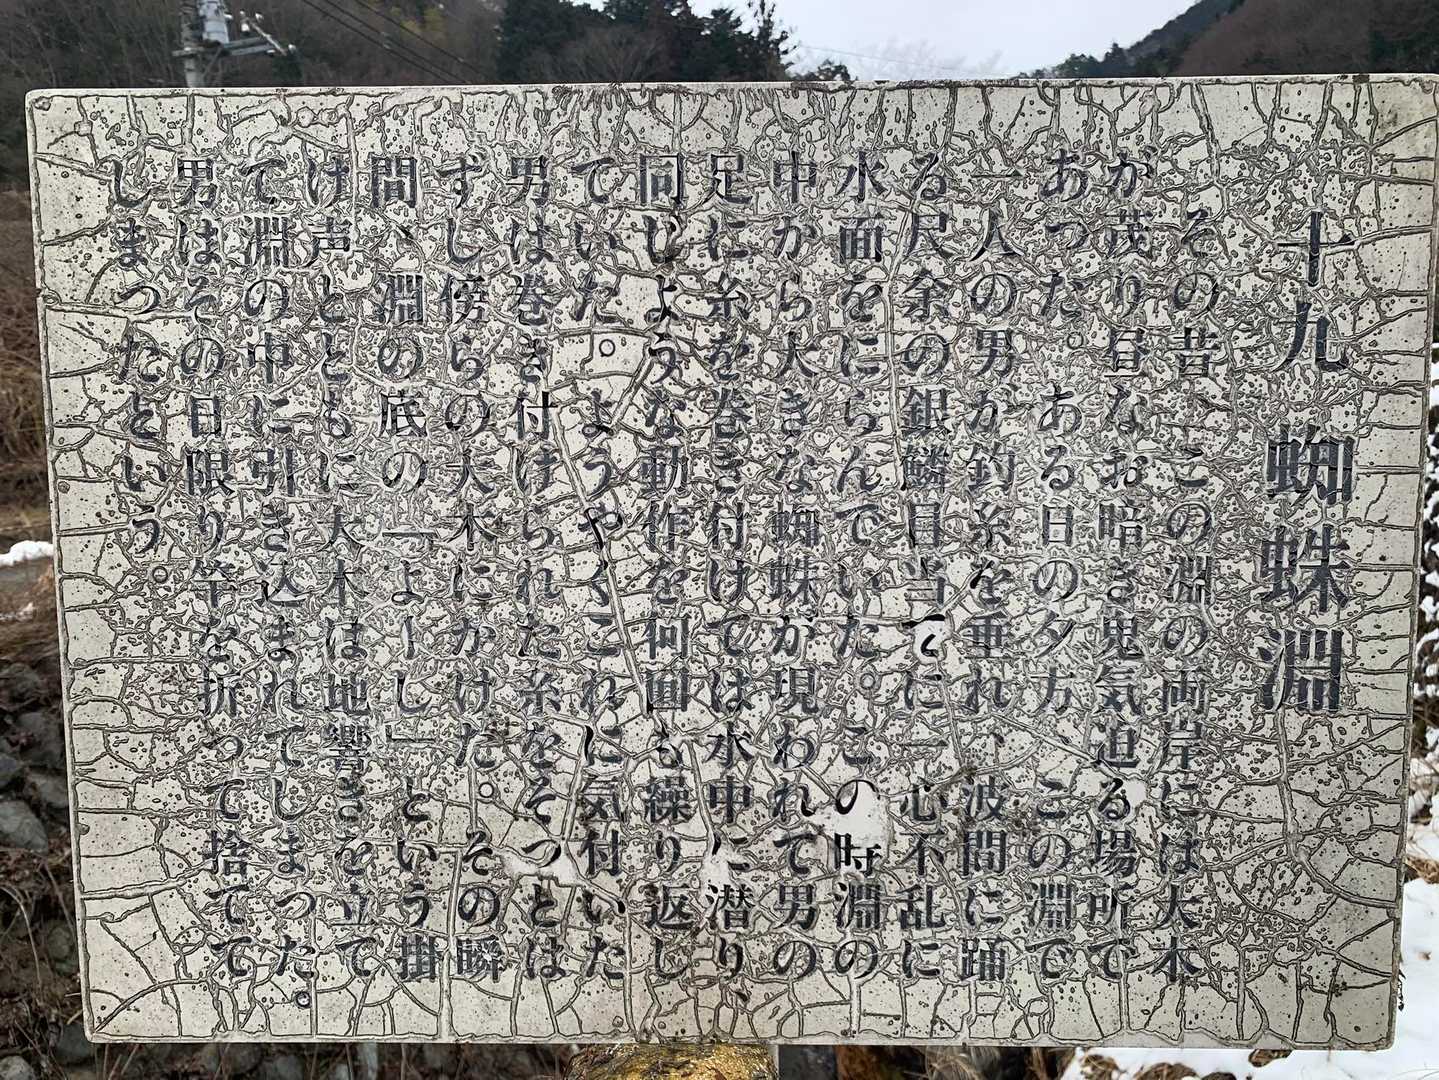 十九 蜘蛛淵
その昔、この淵の両岸には大木
が茂り昼なお暗き鬼気迫る場所で
あった。ある日の夕方、この淵で
一人の男が釣糸を垂れ、波間に踊
る尺余の銀鱗目当てに一心不乱に
水面をにらんでいた。この時淵の
中から大きな蜘蛛が現われて男の
足に糸を巻き付けては水中に潜り、
同じような動作を何回も繰り返し
ていた。ようやくこれに気付いた
男は巻き付けられた糸をそっとは
ずし傍らの大木にかけた。その瞬
間、淵の底の「よーし」という掛
け声とともに大木は地響きを立て
て淵の中に引き込まれてしまった。
男はその日限り竿を折って捨てて
しまったという。